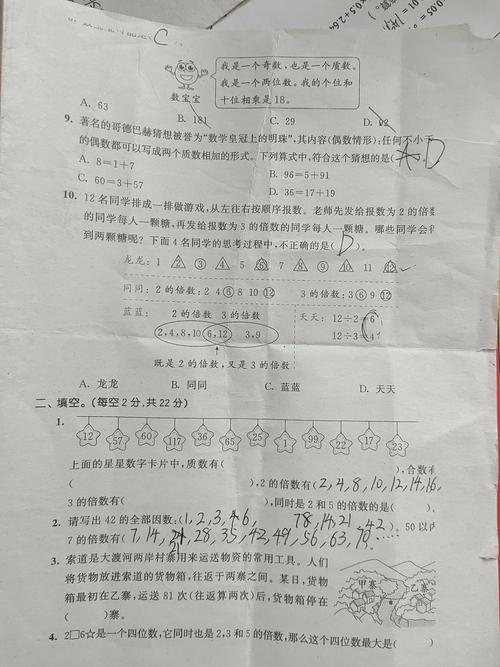 C
我是一个奇数，也是一个质数。
我是一个两位数。我的个位和
十位相乘是18。
数宝宝
A. 63 B. 181 C. 29 D. 92
9. 著名的哥德巴赫猜想被誉为“数学皇冠上的明珠”，其内容(偶数情形)：任何不小于
的偶数都可以写成两个质数相加的形式。下列算式中，符合这个猜想的是( A、D
A. 8=1+7 B. 96=5+91
C. 60=3+57 D. 36=17+19
10. 12名同学排成一排做游戏，从左往右按顺序报数。老师先发给报数为2的倍数
的同学每人一颗糖，再发给报数为3的倍数的同学每人一颗糖。哪些同学会得
到两颗糖呢？下面4名同学的思考过程中，不正确的是( D )。
龙龙：1 2 3 4 5 6 7 8 9 10 11 12
同同：2的倍数：2 4 6 8 10 12 3的倍数：3 6 9 12
蓝蓝： 2的倍数 3的倍数
2,4,8,10 6,12 3,9
天天：12÷2=6
12÷3=4
既是2的倍数，又是3的倍数
A. 龙龙 B. 同同 C. 蓝蓝 D. 天天
二、填空。(每空2分，共22分)
1.
12 57 60 117 36 65 25 1 99 22 17 23
上面的星星数字卡片中，质数有( )，合数有
( )，2的倍数有(2,4,8,10,12,14,16,
3的倍数有( )，同时是2和5的倍数的是( )
2. 请写出42的全部因数：(1,2,3,6, 7,14,21,42)。50以内
7的倍数有(7,14,21,28,35,42,49,56,63,70……
3. 索道是大渡河两岸村寨用来运送物资的常用工具。人们
将货物放进索道的货物箱，往返于两寨之间。某日，货物
箱最初在乙寨，运送81次(往返算两次)后，货物箱停在
( )寨。
甲寨
乙寨
4. 2□6☆是一个四位数，它同时也是2,3和5的倍数，那么这个四位数最大是( )